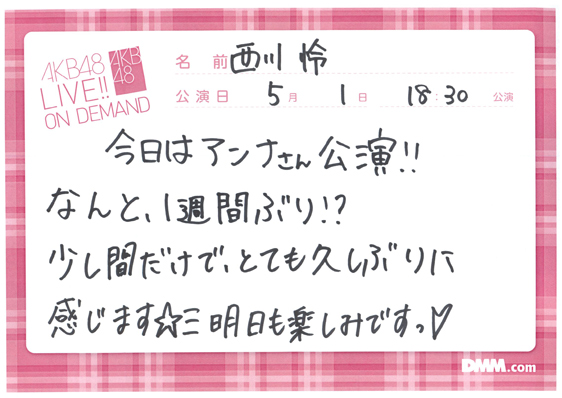 AKB48
LIVE!!
ON DEMAND
AKB
48
名 前 西川 怜
公演日 5月 1日 18:30 公演
今日はアンナさん公演!!
なんと、1週間ぶり!?
少し間だけで、とても久しぶりに
感じます☆三明日も楽しみですっ♡
DMM.com